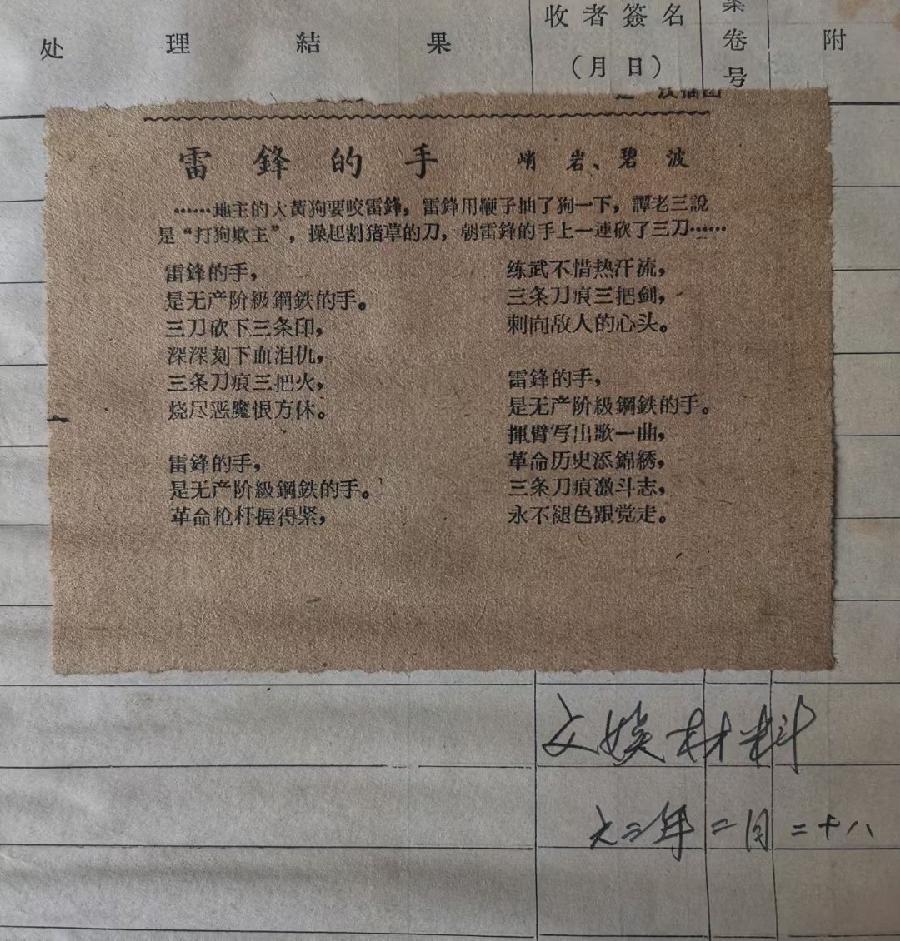 处理結果
收者簽名
(月日)
案卷号
附
雷鋒的手
峭岩、碧波
……地主的大黃狗要咬雷鋒，雷鋒用鞭子抽了狗一下，譚老三說
是“打狗欺主”，操起割猪草的刀，朝雷鋒的手上一連砍了三刀……
雷鋒的手，
是无产阶級鋼鉄的手。
三刀砍下三条印，
深深刻下血泪仇，
三条刀痕三把火，
烧尽恶魔恨方休。
雷鋒的手，
是无产阶級鋼鉄的手。
革命枪杆握得紧，
练武不惜热汗流，
三条刀痕三把劍，
刺向敌人的心头。
雷鋒的手，
是无产阶級鋼鉄的手。
揮臂写出歌一曲，
革命历史添錦绣，
三条刀痕激斗志，
永不褪色跟党走。
文娱材料
六三年二月二十八